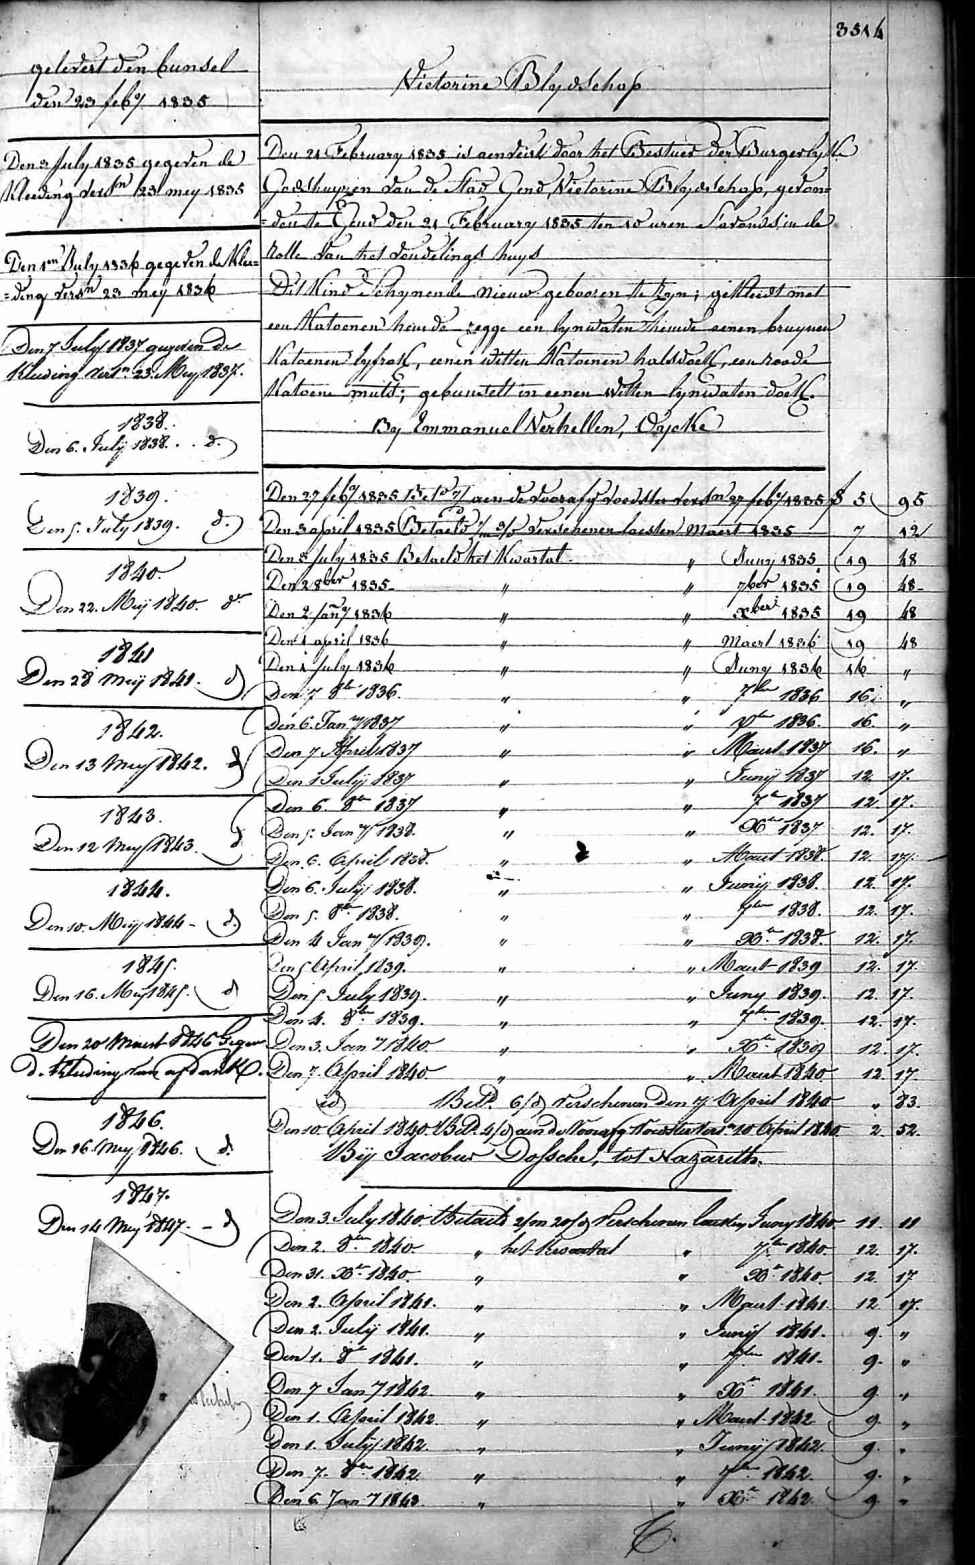 3514
gelevert den bunsel
den 23 feby 1835
Den 3 July 1835 gegeven de
kleeding versn 23 mey 1835
Den 1en July 1836 gegeven de klee=
=ding versn 23 mey 1836
Den 7 July 1837 gegeven de
kleeding versn 23 Mey 1837.
1838.
Den 6. July 1838. . d.
1839.
Den 5. July 1839. d.
1840.
Den 22. Meij 1840. do
1841
Den 28 Meij 1841. d
1842.
Den 13 Meij 1842. d
1843.
Den 12 Meij 1843. d
1844.
Den 10. Meij 1844 - d.
1845.
Den 16. Meij 1845. d
Den 20 Maart 1846 Gegev
d. kleeding van afdank
1846.
Den 16 Meij 1846. d.
1847.
Den 14 Meij 1847. - d
Victorine Blydschap
Den 21 February 1835 is aenveird door het Bestier der Burgerlyke
Godshuyzen van de Stad Gend, Victorine Blydschap, gevon=
=den te Gend den 21 February 1835 ten 10 uren s'avonds in de
rolle van het vondelings huys
Dit kind schynende nieuw gebooren te zyn; gekleedt met
een katoenen hemde zegge een lynwaten hemde eenen bruynen
katoenen lyfrok, eenen witten katoenen halsdoek, een roode
katoene muts; gebunselt in eenen witten lynwaten doek.
By Emmanuel Verhellen, Oycke
Den 27 feby 1835 aen de voorafg voedster versn 27 feby 1835 5 95
Den 3 april 1835 Betaeld verschenen laesten Maert 1835 7 12
Den 3 July 1835 Betaeld het kwartal. " Juny 1835 19 48
Den 2 8ber 1835 " " 7ber 1835 19 48
Den 2 Jany 1836 " " xber 1835 19 48
Den 1 april 1836 " " Maert 1836 19 48
Den 1 July 1836 " " Juny 1836 16 "
Den 7 8er 1836. " " 7ber 1836 16 "
Den 6. Jany 1837 " " Xer 1836. 16. "
Den 7 April 1837 " " Maart 1837 16. "
Den 1 Julij 1837 " " Junij 1837 12. 17.
Den 6. 8er 1837 " " 7er 1837 12. 17.
Den 5. Jany 1838. " " Xer 1837 12. 17.
Den 6. April 1838. " " Maart 1838. 12. 17.
Den 6. July 1838. " " Junij 1838. 12. 17.
Den 5. 8er 1838. " " 7ber 1838. 12. 17.
Den 4 Jany 1839. " " Xer 1838. 12. 17.
Den 5 April 1839. " " Maart 1839 12. 17.
Den 5 July 1839. " " Juny 1839. 12. 17.
Den 4. 8er 1839. " " 7ber 1839. 12. 17.
Den 3. Jany 1840 " " Xer 1839 12. 17.
Den 7. April 1840 " " Maart 1840 12. 17.
id Betd. 6/d verschenen den 7 April 1840 " 83.
Den 10. April 1840. Betd. 4/d aan de Voorafg Voedster versn 10 April 1840 2. 52.
Bij Jacobus Dossche, tot Nazareth.
Den 3 July 1840 Betaelt 2/m 20/d verschenen laesten Juny 1840 11 11
Den 2. 8er 1840 " het kwartal " 7er 1840 12. 17.
Den 31. Xer 1840. " " Xer 1840 12. 17
Den 2. April 1841. " " Maart 1841. 12 17.
Den 2. Julij 1841. " " Junij 1841. 9. "
Den 1. 8er 1841. " " 7ber 1841. 9. "
Den 7 Jany 1842 " " Xer 1841. 9. "
Den 1. April 1842 " " Maart 1842 9. "
Den 1. Julij 1842. " " Junij 1842. 9. "
Den 7. 8er 1842. " " 7er 1842. 9. "
Den 6 Jany 1843 " " Xer 1842. 9 "